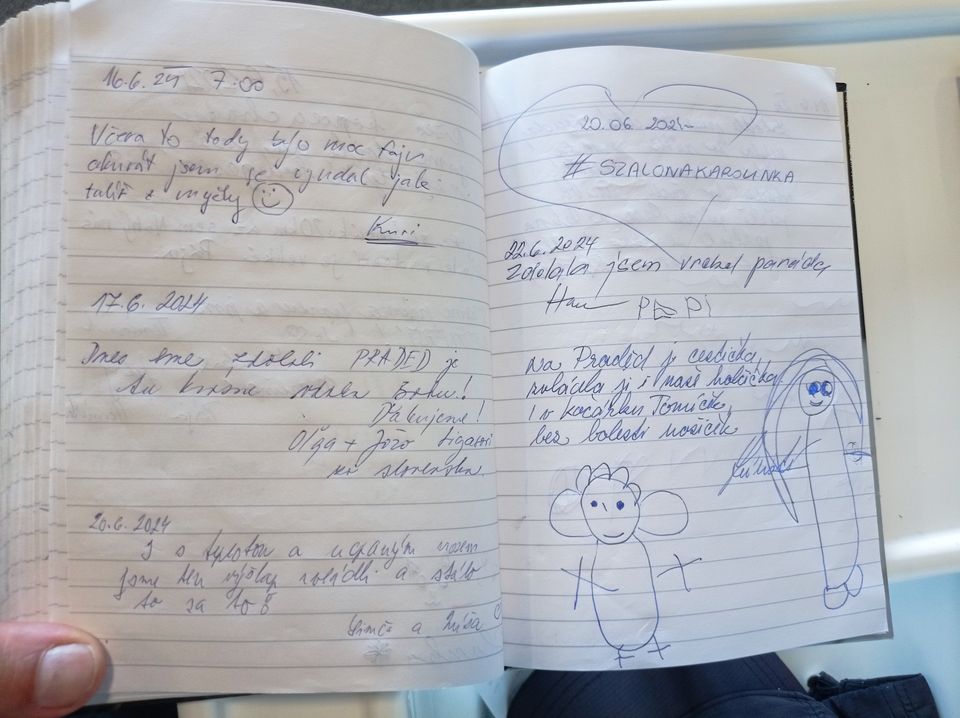 16.6.24 7:00
Včera to tady bylo moc fajn
akorát jsem se vyndal jak
talíř z myčky
Kuri
17.6. 2024
Dnes sme zdolali PRADED je
tu krásne vďaka Bohu!
Ďakujeme!
Oľga + Jožo
zo slovenska
20.6.2024
I s teplotou a ucpaným nosem
jsme ten výšlap zvládli a stálo
to za to
a
20.06.2024
#SZALONAKAROLINKA
22.6.2024
Zdolala jsem vrchol paráda
Na Praděd je cestička,
zvládla ji i naše holčička
I v kočárku Tomíček,
bez bolesti nožiček